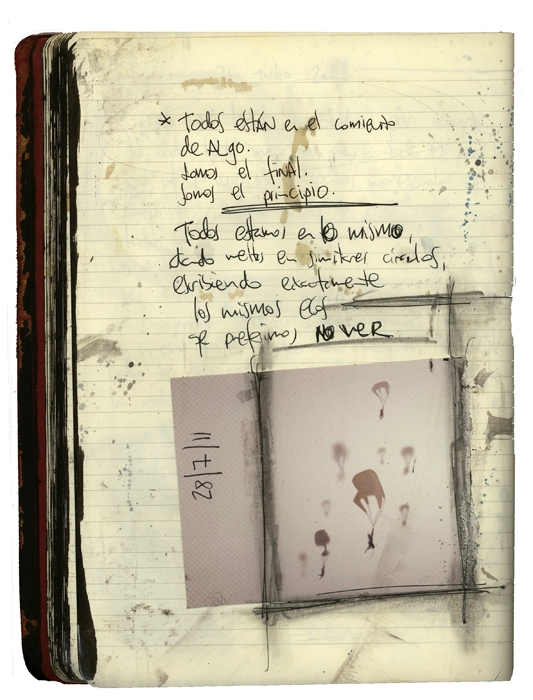 * Todos están en el comienzo
de Algo.
Somos el final.
Somos el principio.
Todos estamos en lo mismo,
dando vueltas en similares círculos,
escribiendo exactamente
los mismos
que preferimos NO VER
28/7/11